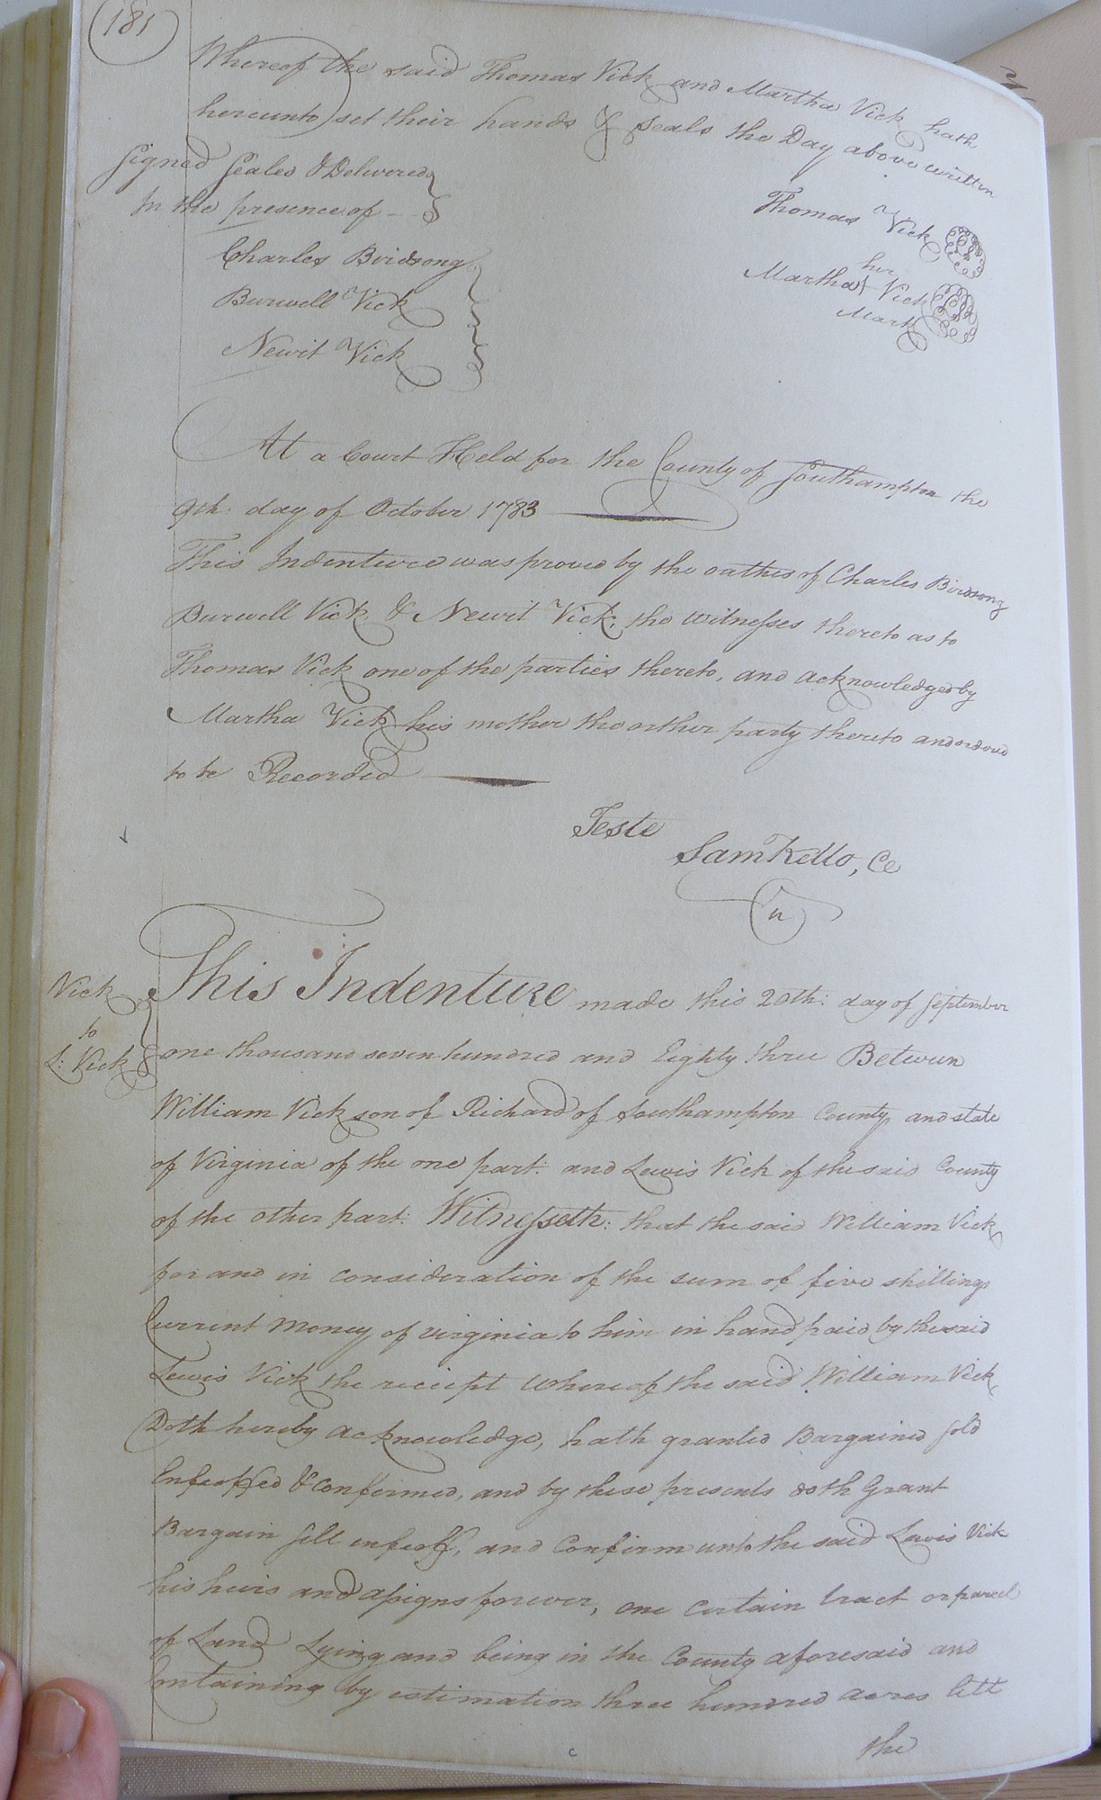 181
Whereof the said Thomas Vick and Martha Vick hath
hereunto set their hands & seals the Day above written
Signed Seales & Delivered
In the presence of
Thomas Vick
Charles Birdsong
her
Martha Vick
Mark
Burwell Vick
Newit Vick
At a Court Held for the County of Southampton the
9th: day of October 1783
This Indenture was proved by the oathes of Charles Birdsong
Burwell Vick & Newit Vick, the witnesses thereto as to
Thomas Vick one of the parties thereto, and acknowledged by
Martha Vick his mother the orther party thereto and ordered
to be Recorded
Teste
Sam Kello, Ce
This Indenture made this 20th: day of September
Vick
to
L: Vick
one thousand seven hundred and Eighty three Between
William Vick son of Richard of Southampton County and state
of Virginia of the one part: and Lewis Vick of the said County
of the other part: Witnesseth: that the said William Vick
for and in consideration of the sum of five shillings
Current money of virginia to him in hand paid by the said
Lewis Vick the receipt whereof the said William Vick
Doth hereby acknowledge, hath granted Bargained sold
Enfeoffed & confirmed, and by these presents doth Grant
Bargain sell enfeoff, and Confirm unto the said Lewis Vick
his heirs and assigns forever, one certain tract or parcel
of Land Lying and being in the County aforesaid and
Containing by estimation three hundred acres
the